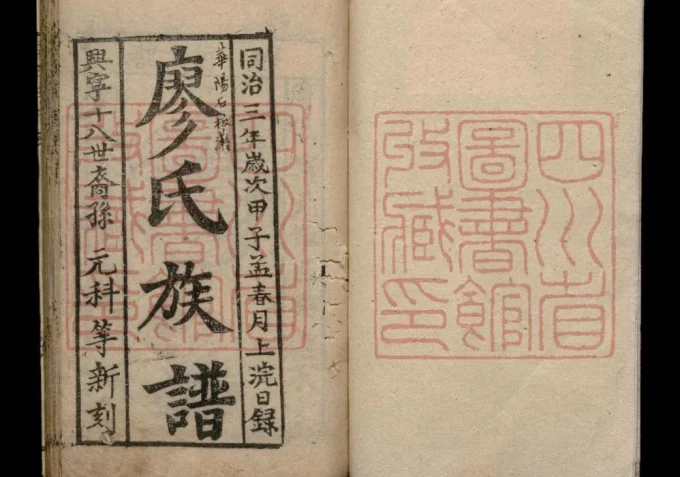 四川省
圖書館
收藏印
同治三年歲次甲子孟春月上浣日錄
華陽石板灘
廖氏族譜
興寧十八世裔孫元科等新刻